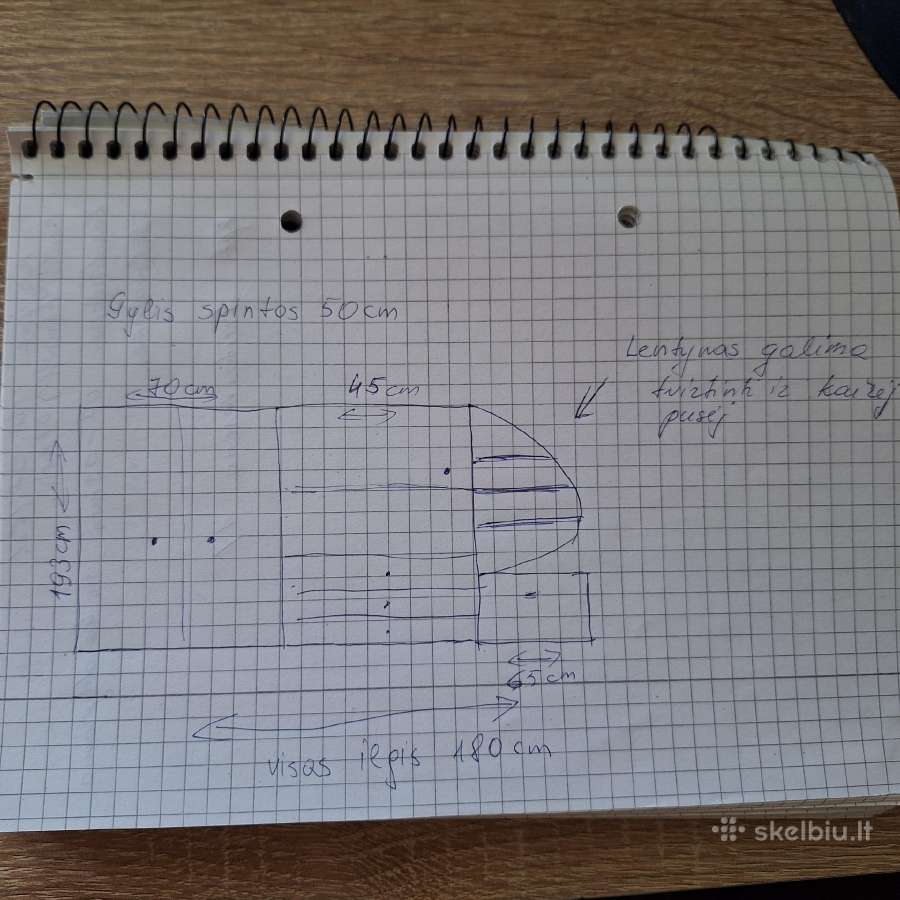 Gylis spintos 50cm
Lentynas galima
tvirtinti iz kairėj
pusėj
70cm
45cm
193cm
65cm
visas ilgis 180cm
skelbiu.lt